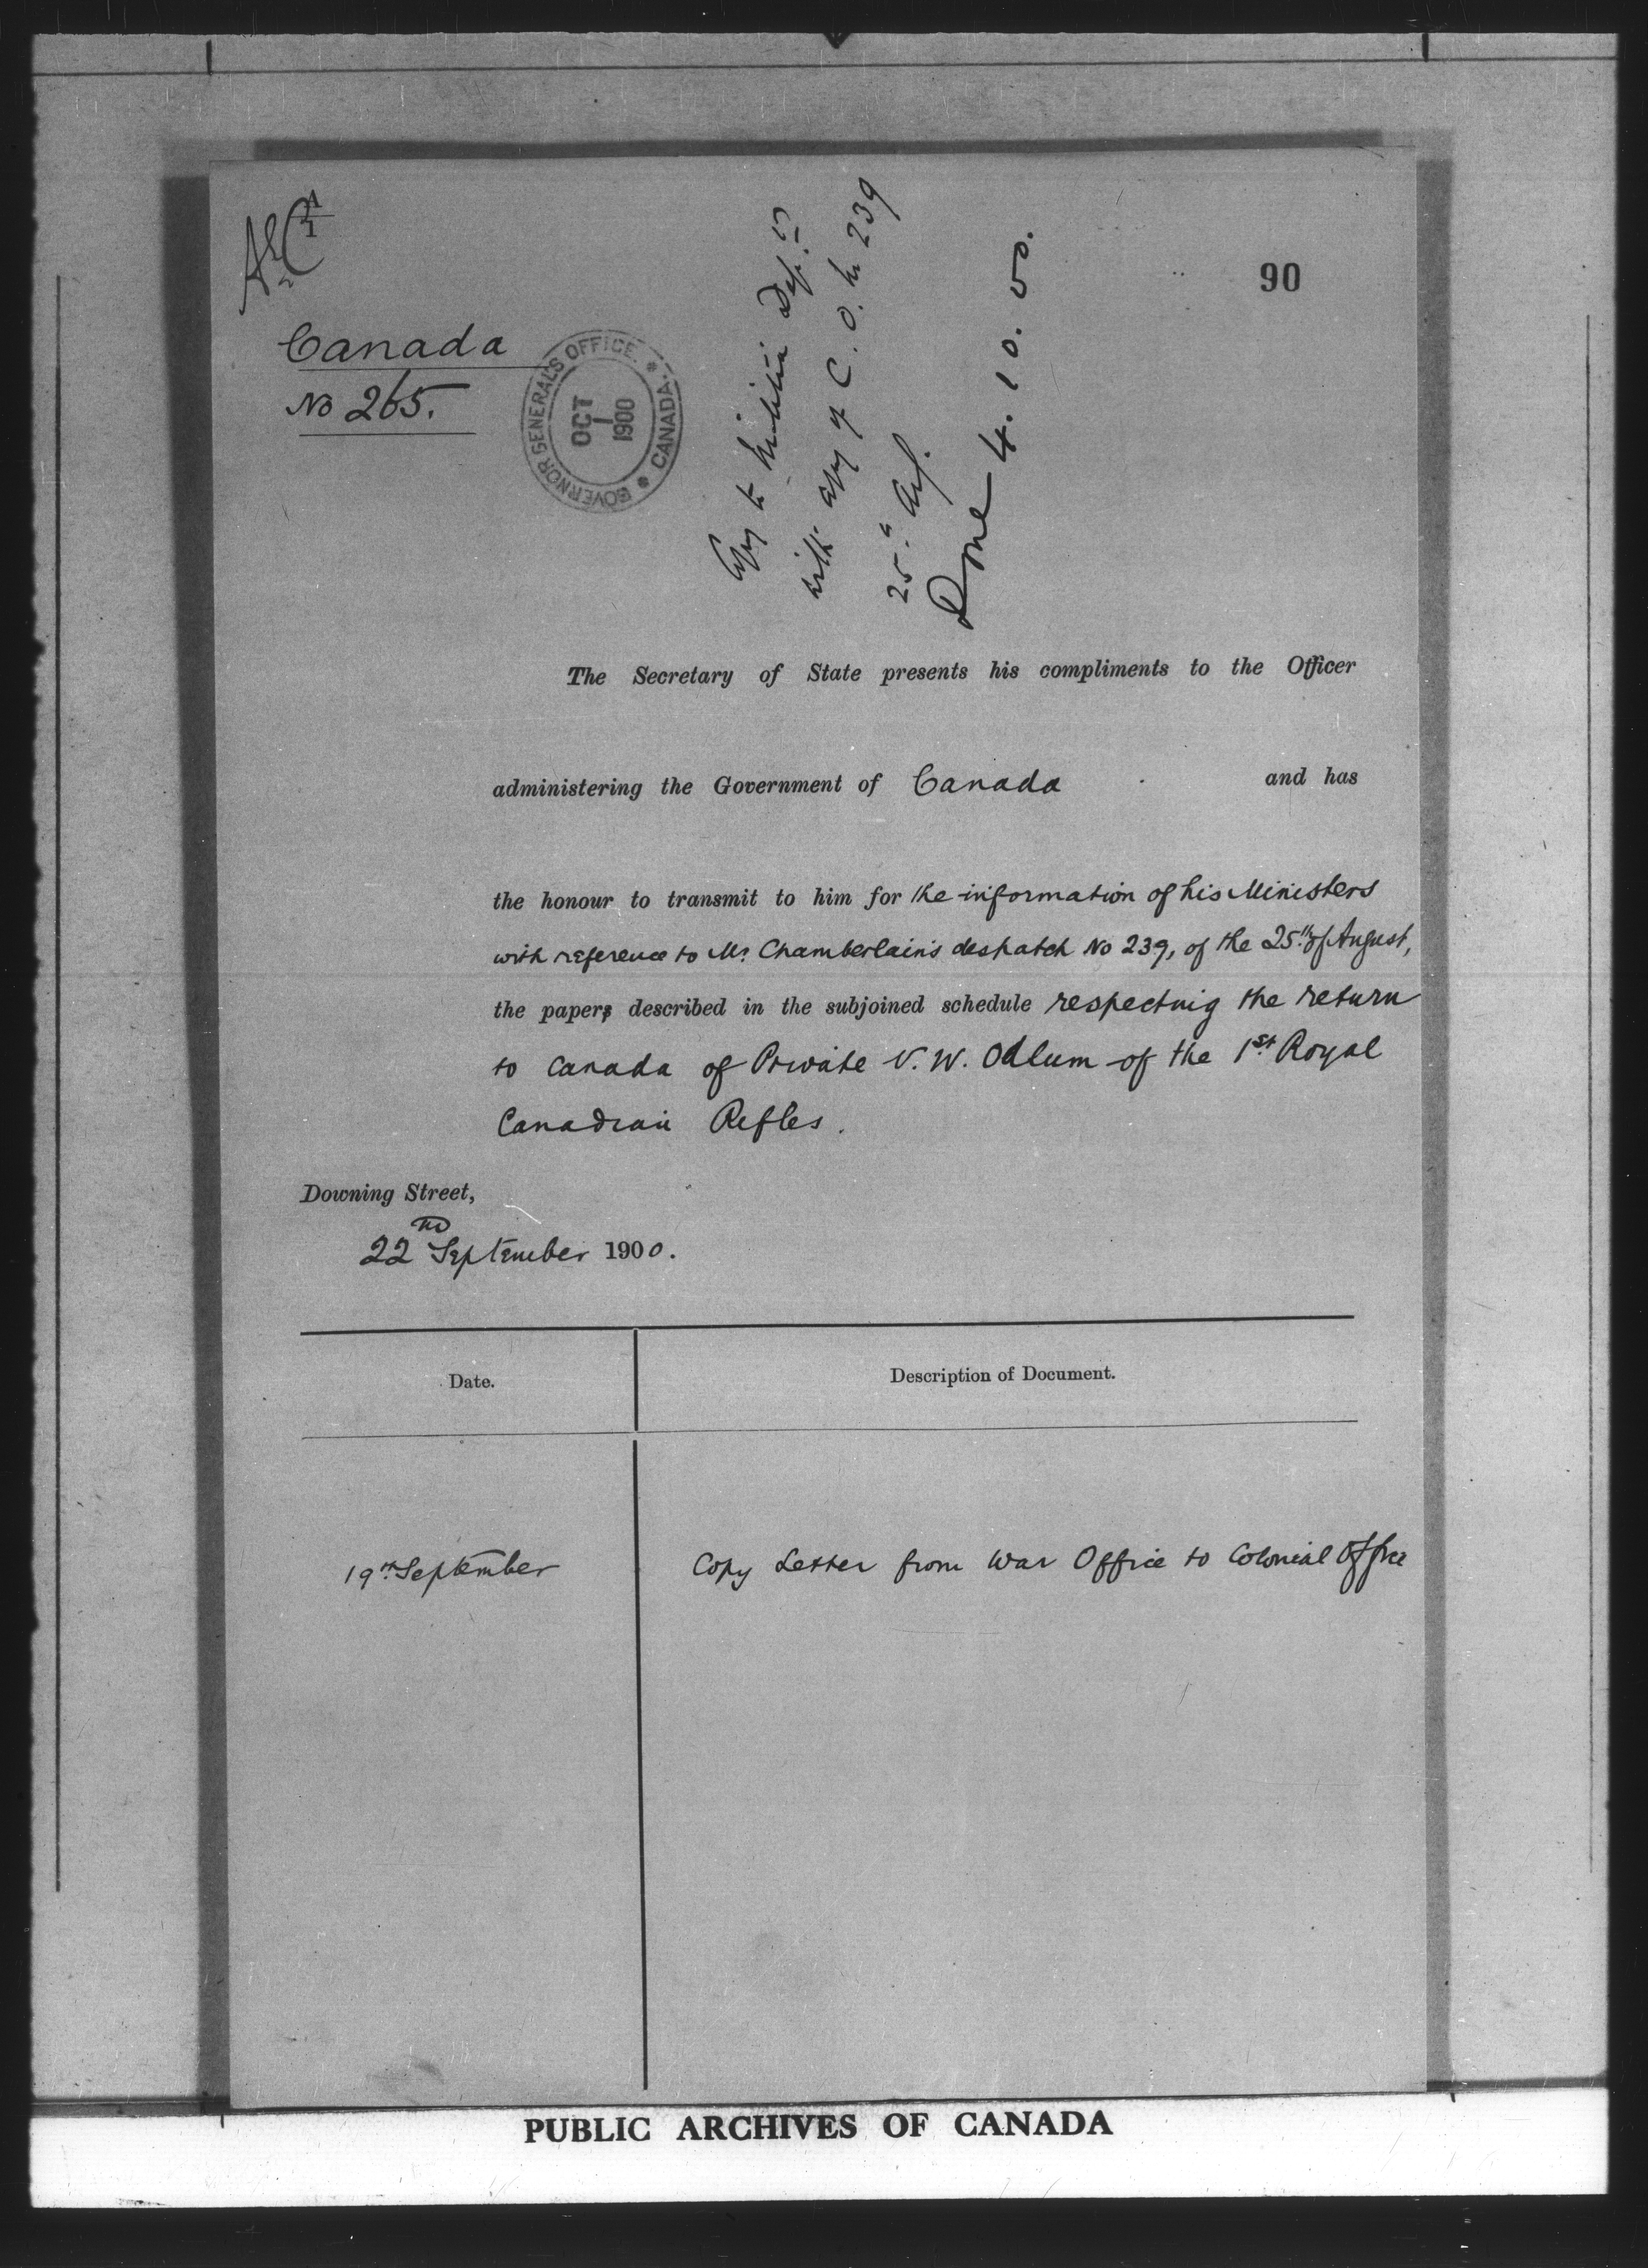 90
Canada
No 265.
GOVERNOR GENERAL'S OFFICE. * CANADA. *
OCT
1
1900
Copy to Militia Dept.
with copy of C. O. No 239
25th Aug.
Done 4. 10. 00.
The Secretary of State presents his compliments to the Officer
administering the Government of Canada and has
the honour to transmit to him for the information of his Ministers
with reference to Mr. Chamberlain's despatch No 239, of the 25th of August,
the papers described in the subjoined schedule respecting the return
to Canada of Private V. W. Odlum of the 1st Royal
Canadian Rifles.
Downing Street,
22nd September 1900.
Date.
Description of Document.
19th September
Copy Letter from War Office to Colonial Office
PUBLIC ARCHIVES OF CANADA